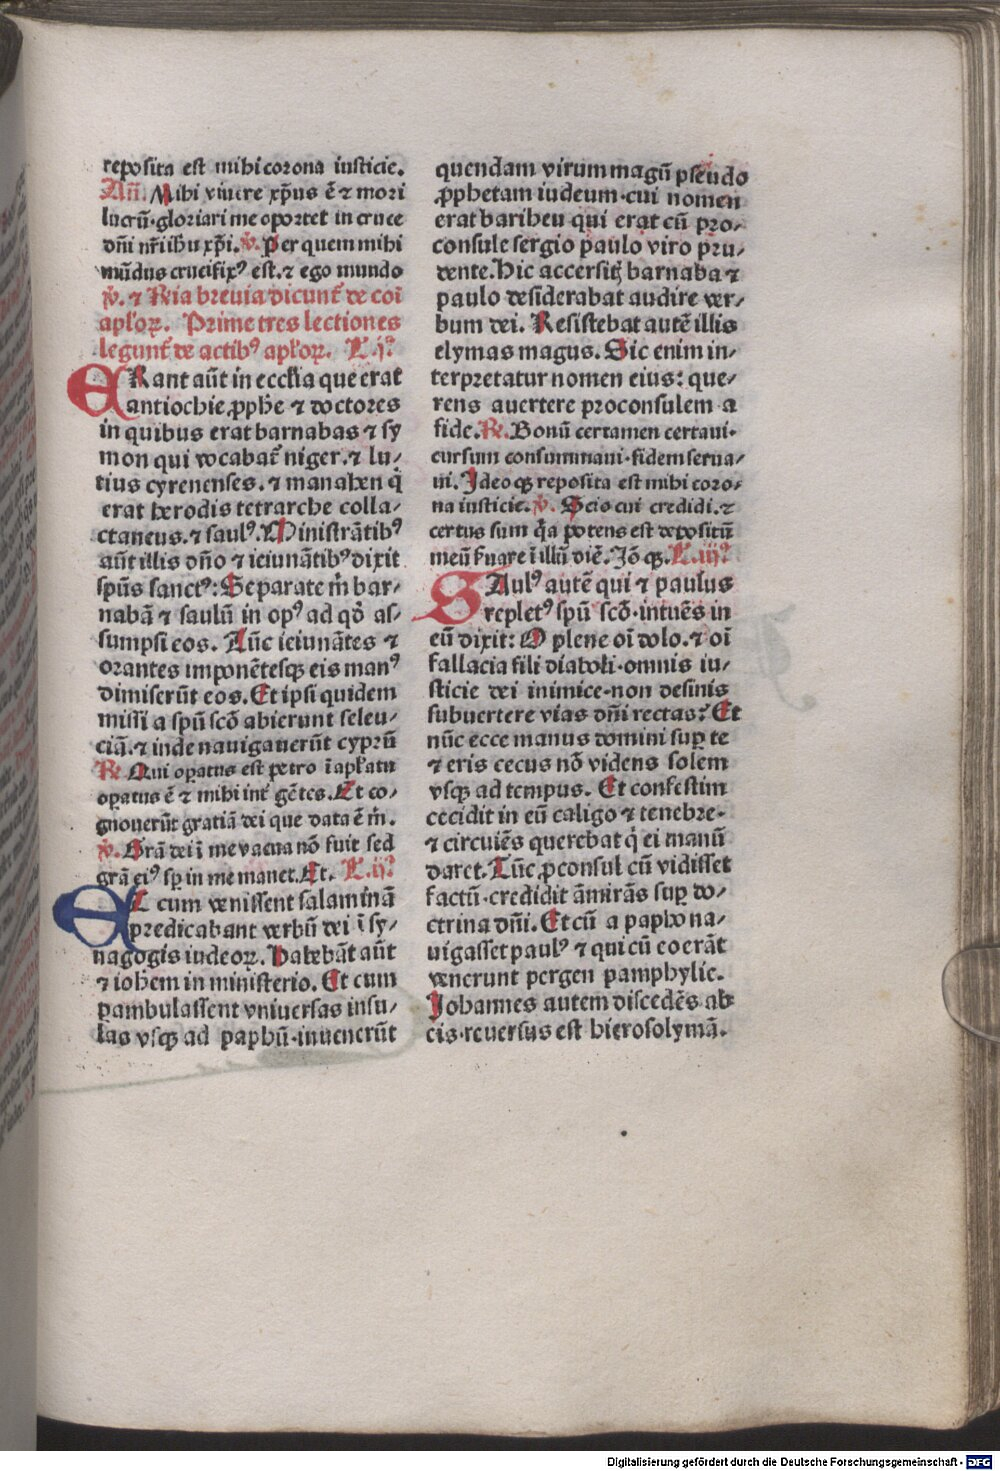 reposita est mihi corona iusticie.
Añ. Mihi viuere xp̄us ē ⁊ mori
lucrū·gloriari me oportet in cruce
dn̄i nr̄i ihu xp̄i. v̾. Per quem mihi
mūdus crucifixꝰ est.⁊ ego mundo
v̾. ⁊ Rr̄ia breuia dicunt᷑ de coi
apl'oꝝ. Prime tres lectiones
legunt᷑ de actibꝰ apl'oꝝ. L. jᵃ
ERant aūt in eccl'ia que erat
antiochie ꝓphe ⁊ doctores
in quibus erat barnabas ⁊ sy
mon qui vocabat᷑ niger.⁊ lu⸗
tius cyrenenses. ⁊ manahen q̇
erat herodis tetrarche colla⸗
ctaneus. ⁊ saulꝰ. Ministrātibꝰ
aūt illis dn̄o ⁊ ieiunātibꝰ dixit
spūs sanctꝰ: Separate m̄ bar⸗
nabā ⁊ saulū in opꝰ ad qd̓ as⸗
sumpsi eos. Tūc ieiunātes ⁊
orantes imponētesqꝫ eis manꝰ
dimiserūt eos. Et ipsi quidem
missi a spū scō abierunt seleu⸗
ciā.⁊ inde nauigauerūt cyprū
R̷. Qui oꝑatus est petro ī apl'atu
oꝑatus ē ⁊ mihi int᷑ gētes. Et co⸗
gnouerūt gratiā dei que data ē m̄.
v̾. Grā dei ī me vacua nō fuit sed
grā eiꝰ sꝑ in me manet. Et. L. ijᵃ
ET cum venissent salaminā
predicabant verbū dei ī sy⸗
nagogis iudeoꝝ. Habebāt aūt
⁊ iohēm in ministerio. Et cum
ꝑambulassent vniuersas insu⸗
las vsqꝫ ad paphū·inuenerūt
quendam virum magū pseudo
ꝓphetam iudeum·cui nomen
erat baribeu qui erat cū pro⸗
consule sergio paulo viro pru⸗
dente. Hic accersitꝭ barnaba ⁊
paulo desiderabat audire ver⸗
bum dei. Resistebat autē illis
elymas magus. Sic enim in⸗
terpretatur nomen eius: que⸗
rens auertere proconsulem a
fide. R̷. Bonū certamen certaui·
cursum consummaui·fidem serua⸗
ui. Ideoqꝫ reposita est mihi coro⸗
na iusticie. v̾. Scio cui credidi.⁊
certus sum q̄a potens est depositū
meū s̓uare ī illū diē. Iō qꝫ. L. iijᵃ
SAulꝰ autē qui ⁊ paulus
repletꝰ spū scō·intuēs in
eū dixit: O plene oī dolo.⁊ oī
fallacia fili diaboli·omnis iu⸗
sticie dei inimice·non desinis
subuertere vias dn̄i rectas? Et
nūc ecce manus domini suꝑ te
⁊ eris cecus nō videns solem
vsqꝫ ad tempus. Et confestim
cecidit in eū caligo ⁊ tenebre·
⁊ circuiēs querebat q̇ ei manū
daret. Tūc ꝓconsul cū vidisset
factū·credidit āmirās suꝑ do⸗
ctrina dn̄i. Et cū a papho na⸗
uigasset paulꝰ ⁊ qui cū eo erāt
venerunt pergen pamphylie.
Johannes autem discedēs ab
eis·reuersus est hierosolymā.
Digitalisierung gefördert durch die Deutsche Forschungsgemeinschaft - DFG